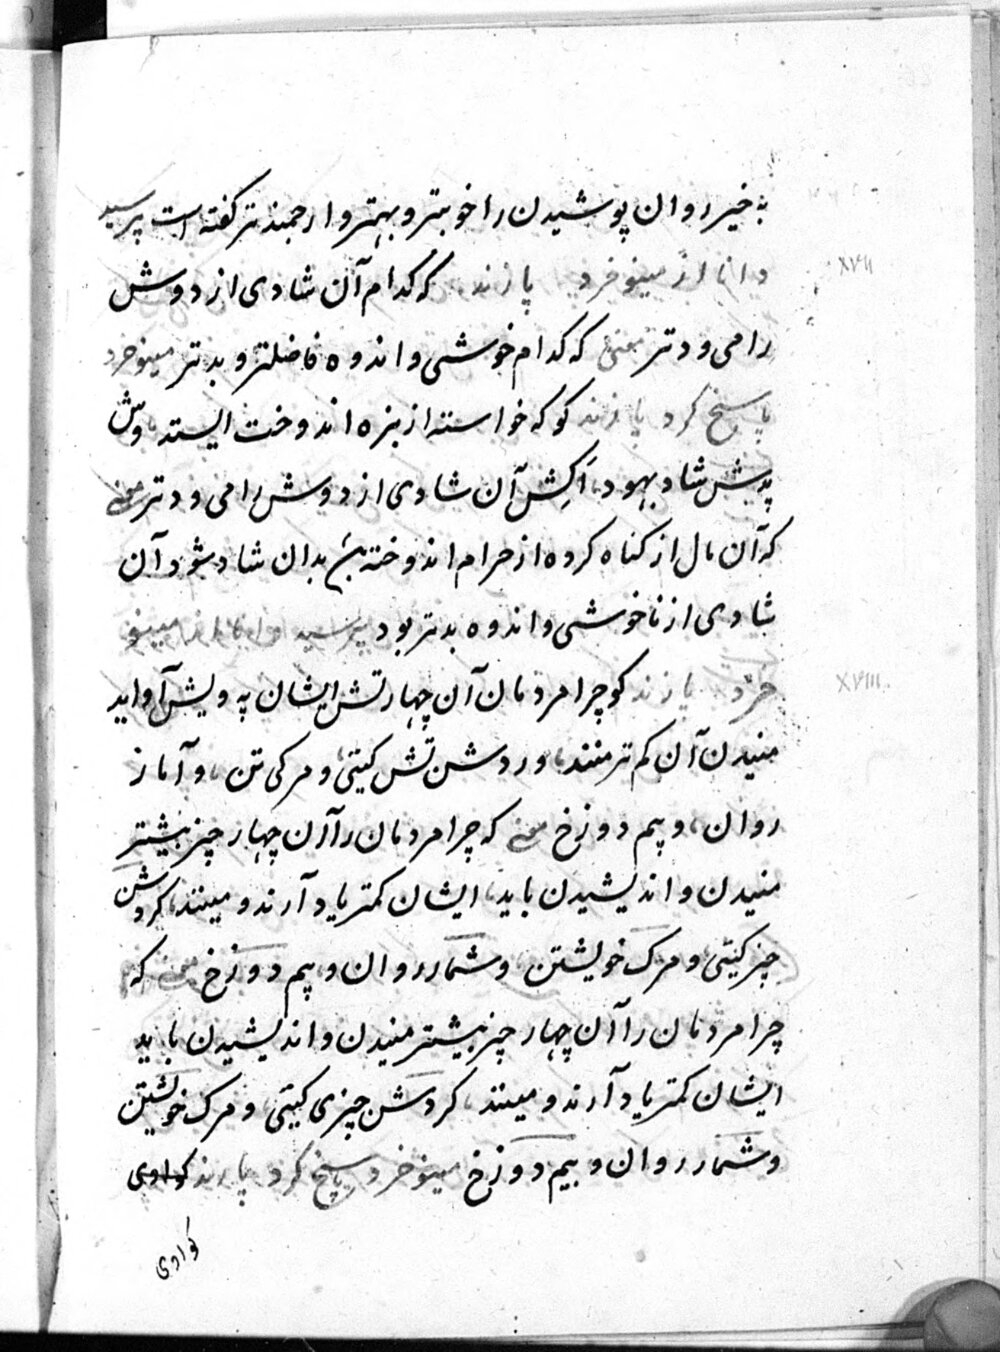 به خیر روان پوشیدن را خوبتر و بهتر و ارجمند تر گفته است پرسید
دانا از مینوخرد پازند که کدام آن شادی از دوش
رامی ود تر معنی که کدام خوشی و اندوه فاضلتر و بدتر مینوخرد
پاسخ کرد پازند کو که خواسته از بزه اندوخت ایستد وش
پدش شاد بهود اکش آن شادی از دوش رامی ود تر معنی
که آن مال از کناه کروه از حرام اندوخته بدان شاد شود آن
شادی از ناخوشی و اندوه بدتر بود پرسید دانا از مینو
خرد پازند کو چرا مردمان آن چهار تش ایشان په ویش آواید
منیدن آن کم تر منند وردشن تش کیتی و مرکی تن و آماز
روان و بیم دوزخ معنی که چرا مردمان را آن چهار چیز بیشتر
منیدن و اندیشیدن باید ایشان کمتر یاد آرند و مینند کردش
چیز کیتی و مرک خویشتن و شمار روان و بیم دوزخ معنی که
چرا مردمان را آن چهار چیز بیشتر منیدن و اندیشیدن باید
ایشان کمتر یاد آرند و مینند کردش چیزی کیتی و مرک خویشتن
و شمار روان و بیم دوزخ مینوخرد پاسخ کرد پازند کوادی
کوادی
XVII
XVIII